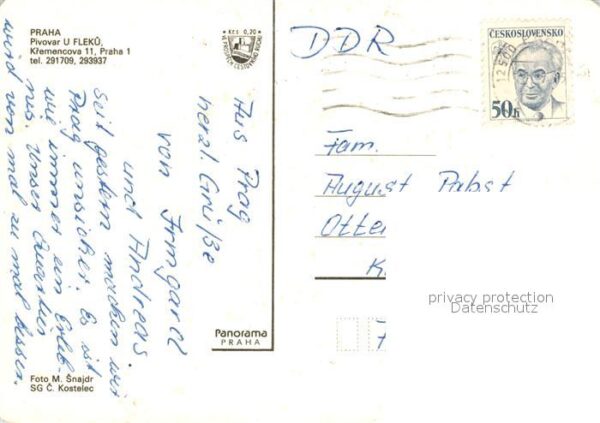 PRAHA
Pivovar U FLEKŮ,
Křemencova 11, Praha 1
tel. 291709, 293937
Kčs 0,20
VE PROSPĚCH CESTOVNÍHO RUCHU
Aus Prag
herzl. Grüße
von Irmgard
und Andreas
Seit gestern machen wir
Prag unsicher. Es ist
wie immer ein Erleb-
nis. Unser Quartier
wird von mal zu mal besser.
Foto M. Šnajdr
SG Č. Kostelec
Panorama
PRAHA
DDR
ČESKOSLOVENSKO
50h
Fam.
August Pabst
Otten
K
privacy protection
Datenschutz